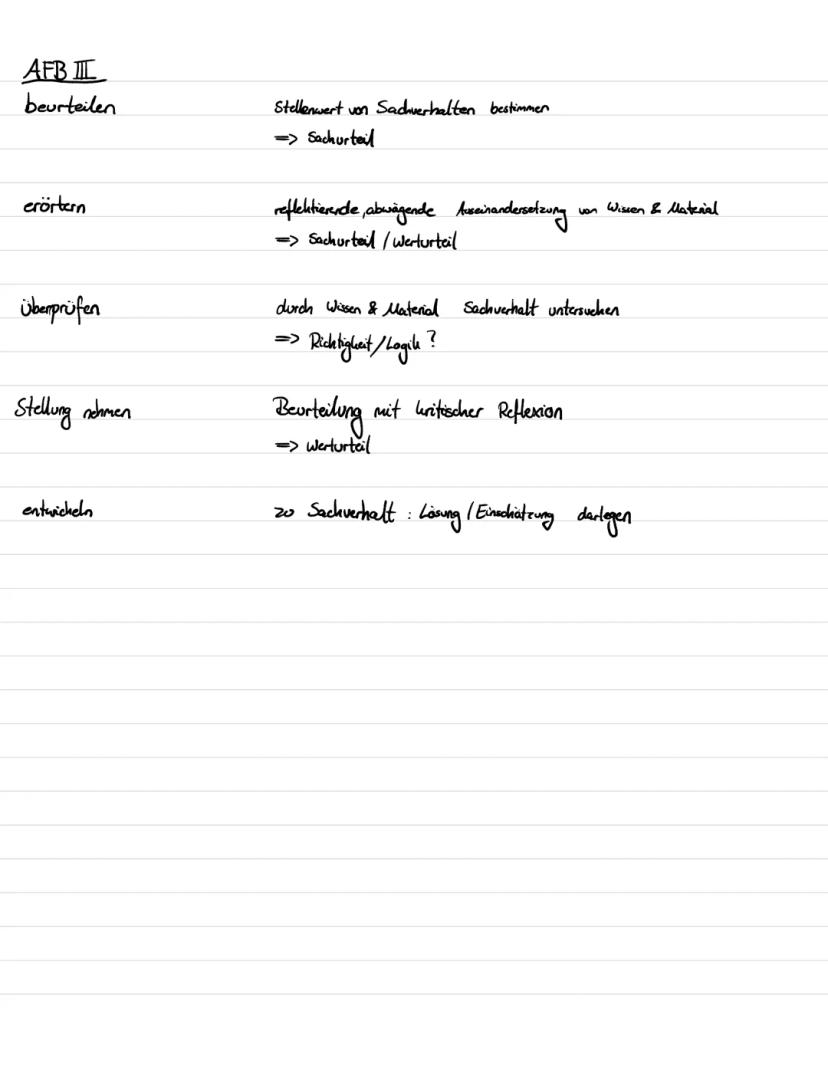 AFB III
beurteilen Stellenwert von Sachverhalten bestimmen
=> Sachurteil
erörtern reflektierende, abwägende Auseinandersetzung von Wissen & Material
=> Sachurteil / Werturteil
überprüfen durch Wissen & Material Sachverhalt untersuchen
=> Richtigkeit / Logik ?
Stellung nehmen Beurteilung mit kritischer Reflexion
=> Werturteil
entwickeln zu Sachverhalt : Lösung / Einschätzung darlegen